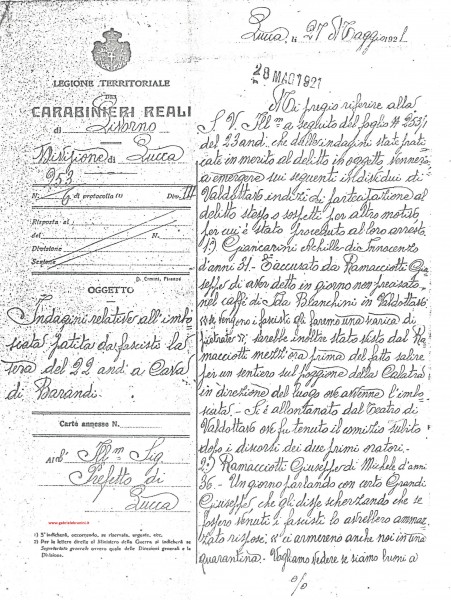 LEGIONE TERRITORIALE
DEI
CARABINIERI REALI
di Livorno
Divisione di Lucca
253
N. 6 di protocollo (1) Div. III
Risposta al
del N.
Divisione
Sezione
D. Cimini, Firenze
OGGETTO
Indagini relative all'imbo
scata patita dai fascisti la
sera del 22 and. a Cava
di Barandi.
Carte annesse N.
Al l' Ill.m Sig
Prefetto di
Lucca
www.gabrielebrunini.it
1) S'indicherà, occorrendo, se riservata, urgente, etc.
2) Per le lettere dirette al Ministero della Guerra si indicherà se
Segretariato generale ovvero quale delle Direzioni generali e la
Divisione.
Lucca, li 27 Maggio 1921
28 MAG 1921
Mi pregio riferire alla
S. V. Ill.ma seguito del foglio N 253/
del 23 and. che dalle indagini state prati
cate in merito al delitto in oggetto, vennero
a emergere sui seguenti individui di
Valdottavo indizi di partecipazione al
delitto stesso o sospetti per altro motivo
per cui è stato proceduto al loro arresto
1) Giancarini Achille di Innocenzo
d'anni 31. È accusato da Ramacciotti Giu
seppe di aver detto in giorno non precisato
nel caffè di Ida Blanchini in Valdottavo
"se vengono i fascisti gli faremo una scarica di
pietrate"; sarebbe inoltre stato visto dal Ra
macciotti mezz'ora prima del fatto salire
per un sentiero sul Poggione della Calatra
in direzione del luogo ove avvenne l'imbo
scata. - Si è allontanato dal Teatro di
Valdottavo ove fu tenuto il comizio subito
dopo i discorsi dei due primi oratori. -
2) Ramacciotti Giuseppe di Michele d'anni
36. - Un giorno parlando con certo Grandi
Giuseppe che gli disse scherzando che se
fossero venuti i fascisti lo avrebbero ammaz
zato rispose; "ci armeremo anche noi in una
quarantina. Vogliamo vedere se siamo buoni a
%